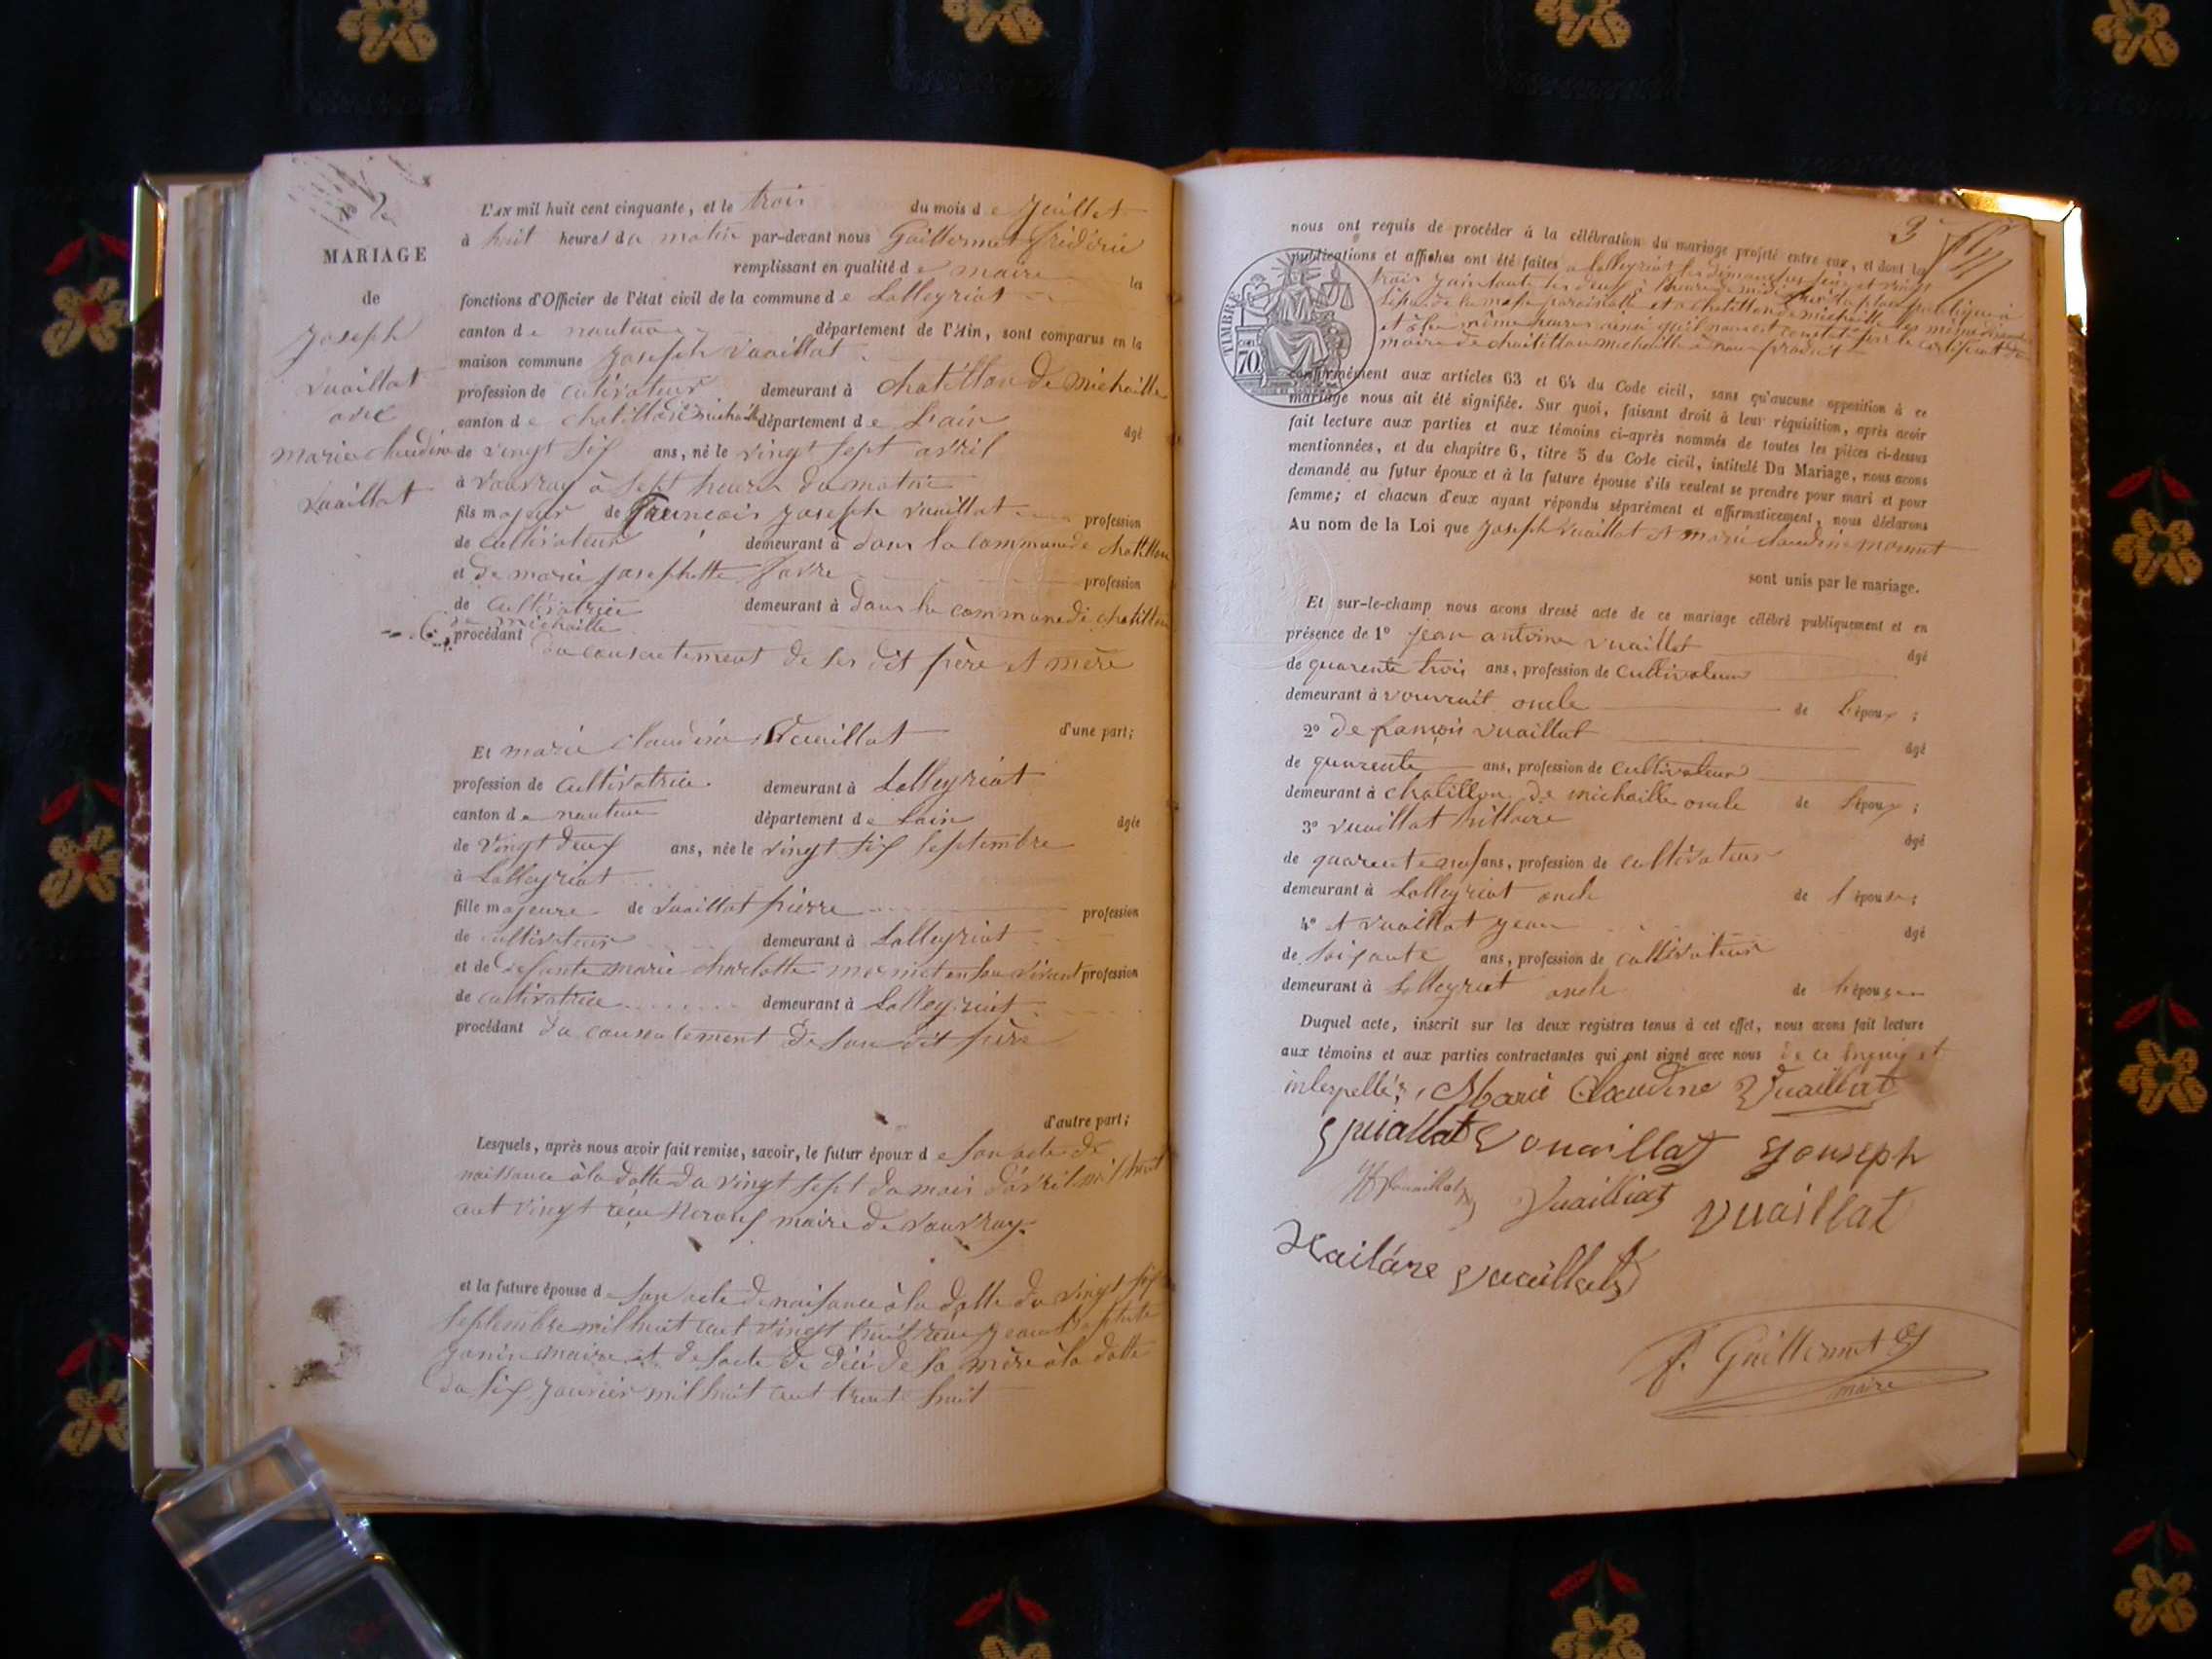 N° 2
MARIAGE
de
Joseph
Vuaillat
avec
marie claudine
Vuaillat
L'AN mil huit cent cinquante, et le trois du mois de Juillet
à huit heures du matin par-devant nous Guillermet frédéric
remplissant en qualité de maire les
fonctions d'Officier de l'état civil de la commune de Lalleyriat
canton de nantua département de l'Ain, sont comparus en la
maison commune Joseph Vuaillat
profession de cultivateur demeurant à chatillon de michaille
canton de chatillon michaille département de L'ain âgé
de vingt six ans, né le vingt sept avril
à Vouvray à sept heures du matin
fils majeur de François Joseph Vuaillat profession
de cultivateur demeurant à dans la commune de chatillon
et de marie josephette favre profession
de cultivatrice demeurant à dans la commune de chatillon
de michaille
procédant du consentement de ses dit père et mère
d'une part;
Et marie claudine Vuaillat
profession de cultivatrice demeurant à Lalleyriat
canton de nantua département de Lain âgée
de vingt deux ans, née le vingt six septembre
à Lalleyriat
fille majeure de Vuaillat pierre profession
de cultivateur demeurant à Lalleyriat
et de defunte marie charlotte mornet en son vivant profession
de cultivatrice demeurant à Lalleyriat
procédant du consentement de son dit père
d'autre part;
Lesquels, après nous avoir fait remise, savoir, le futur époux de son acte de
naissance à la datte du vingt sept du mois d'avril mil huit
cent vingt reçu maire de vouvray
et la future épouse de son acte de naissance à la datte du vingt six
septembre mil huit cent vingt huit reçu jean baptiste
janin maire et de l'acte de déci de sa mère à la datte
du six janvier mil huit cent trente huit
3
TIMBRE
70
nous ont requis de procéder à la célébration du mariage projeté entre eux, et dont les
publications et affiches ont été faites à Lalleyriat les dimanches et vingt
trois juin toute les deux à heure de midi sur la place publique à
l'issue de la messe paroissialle et à chatillon de michaille les même dimanches
et à la même heures ainsi qu'il nous est constaté par le certificat du
maire de chatillon michaille à nous produit
conformément aux articles 63 et 64 du Code civil, sans qu'aucune opposition à ce
mariage nous ait été signifiée. Sur quoi, faisant droit à leur réquisition, après avoir
fait lecture aux parties et aux témoins ci-après nommés de toutes les pièces ci-dessus
mentionnées, et du chapitre 6, titre 5 du Code civil, intitulé Du Mariage, nous avons
demandé au futur époux et à la future épouse s'ils veulent se prendre pour mari et pour
femme; et chacun d'eux ayant répondu séparément et affirmativement, nous déclarons
Au nom de la Loi que joseph Vuaillat et marie claudine mornet
sont unis par le mariage.
Et sur-le-champ nous avons dressé acte de ce mariage célébré publiquement et en
présence de 1° jean antoine vuaillat âgé
de quarente trois ans, profession de cultivateur
demeurant à vouvrait oncle de l'époux;
2° de françois vuaillat âgé
de quarente ans, profession de cultivateur
demeurant à chatillon de michaille oncle de l'époux;
3° vuaillat hillaire âgé
de quarente neuf ans, profession de cultivateur
demeurant à Lalleyriat oncle de l'épouse;
4° et vuaillat jean âgé
de soixante ans, profession de cultivateur
demeurant à Lalleyriat oncle de l'épouse
Duquel acte, inscrit sur les deux registres tenus à cet effet, nous avons fait lecture
aux témoins et aux parties contractantes qui ont signé avec nous de ce enquis et
interpellés, Marie Claudine Vuaillat
Vuaillat Vouaillat Jouseph
Vuailliat Vuaillat
Hailáire Vuaillat
f. Guillermet
maire